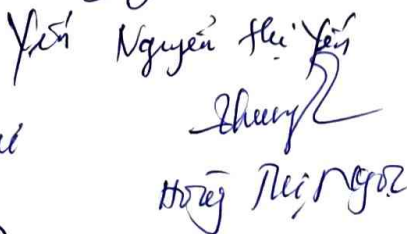 Yến Nguyễn Thị Yến
Hoàng Thị Ngọc